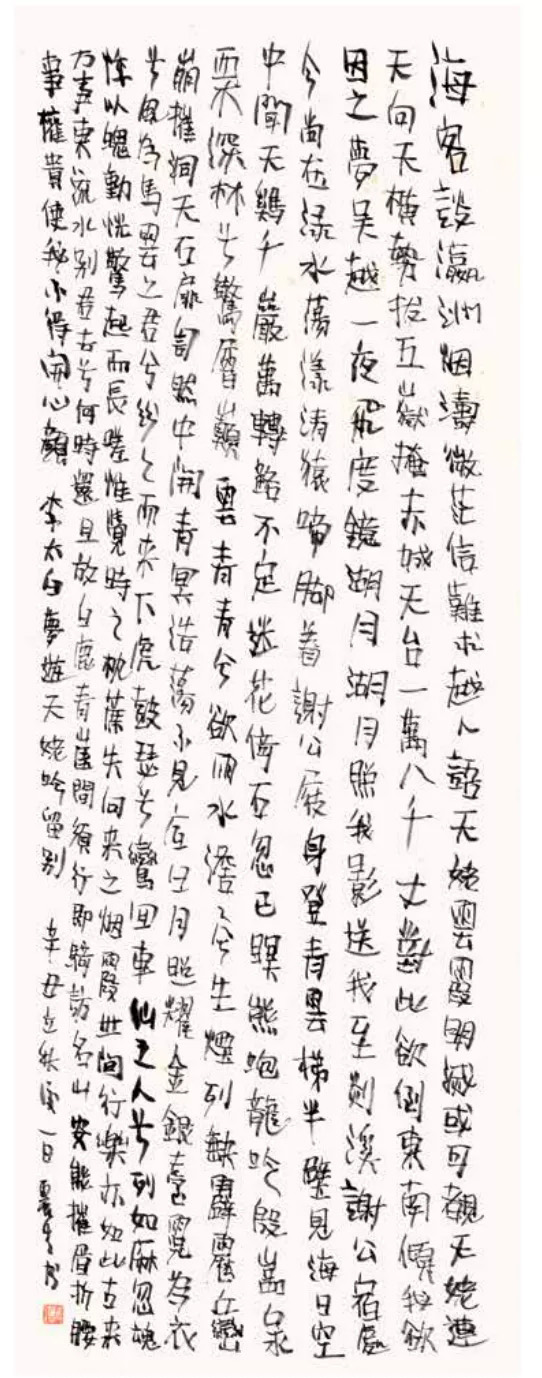 海客談瀛洲烟濤微茫信難求越人語天姥雲霞明滅或可覩天姥連
天向天橫勢拔五嶽掩赤城天台一萬八千丈對此欲倒東南傾我欲
因之夢吳越一夜飛度鏡湖月湖月照我影送我至剡溪謝公宿處
今尚在淥水蕩漾清猿啼脚着謝公屐身登青雲梯半壁見海日空
中聞天鷄千巖萬轉路不定迷花倚石忽已暝熊咆龍吟殷嵓泉
栗深林兮驚層巔雲青青兮欲雨水澹々兮生煙列缺霹靂丘巒
崩摧洞天石扉訇然中開青冥浩蕩不見底日月照耀金銀臺霓為衣
兮風為馬雲之君兮紛々而来下虎鼓瑟兮鸞回車仙之人兮列如麻忽魂
悸以魄動怳驚起而長嗟惟覺時之枕蓆失向来之烟霞世間行樂亦如此古来
万事東流水别君去兮何時還且放白鹿青崖間須行即騎訪名山安能摧眉折腰
事權貴使我不得開心顔 李太白夢遊天姥吟留别 辛丑立秋後一日 书